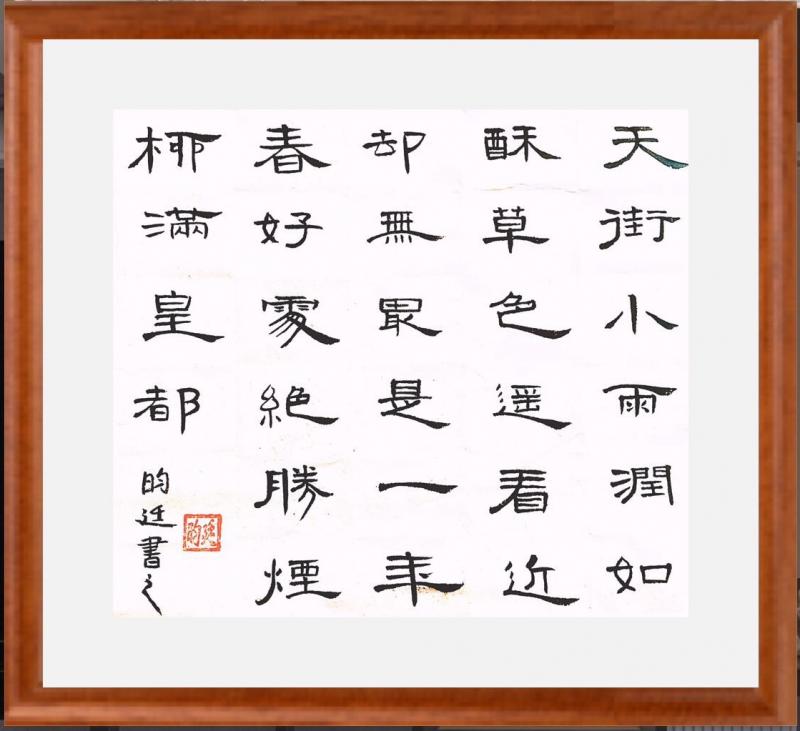 天街小雨潤如
酥草色遥看近
却無最是一年
春好處絶勝煙
柳滿皇都
昀廷書之